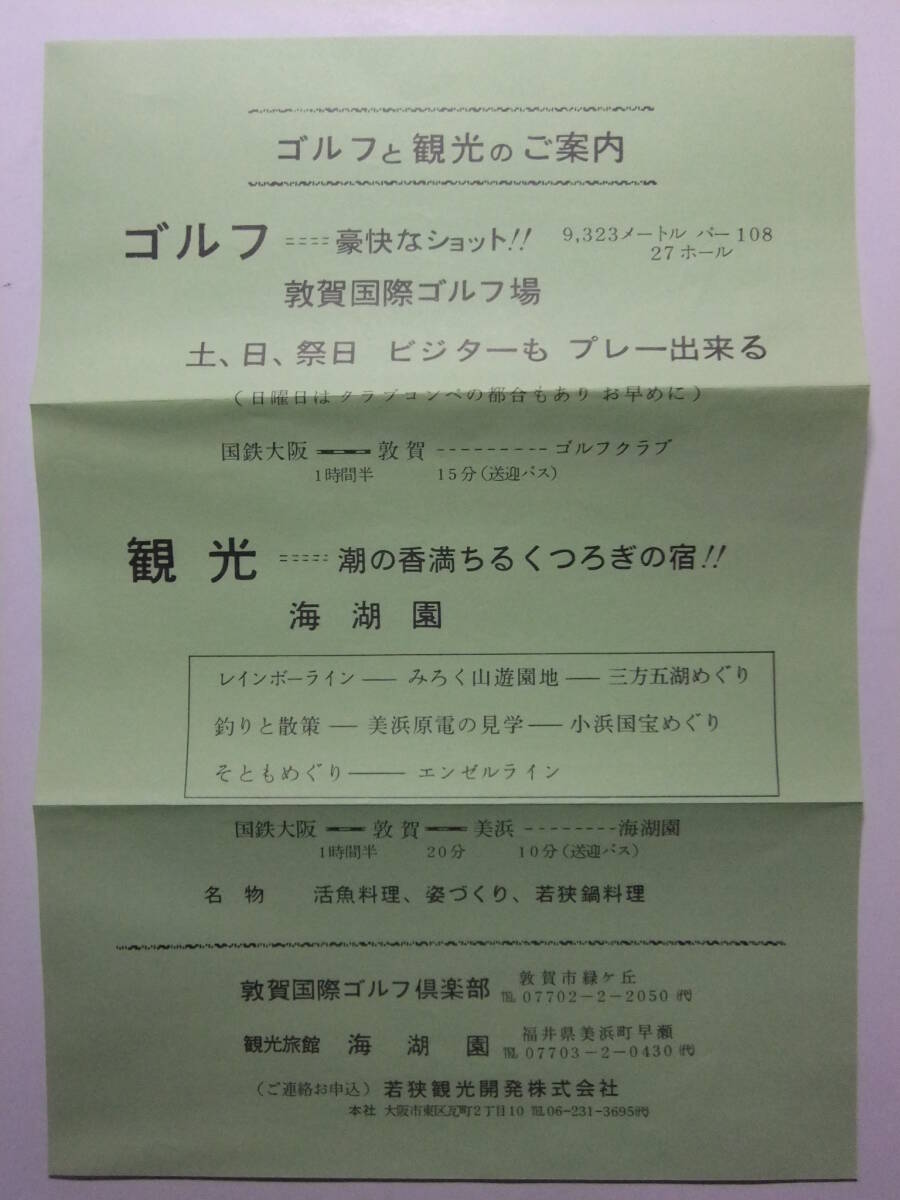 ゴルフと観光のご案内
ゴルフ ==== 豪快なショット!! 9,323メートル パー108
27ホール
敦賀国際ゴルフ場
土、日、祭日 ビジターも プレー出来る
(日曜日はクラブコンペの都合もあり お早めに)
国鉄大阪 敦賀 --------- ゴルフクラブ
1時間半 15分(送迎バス)
観光 ===== 潮の香満ちるくつろぎの宿!!
海湖園
レインボーライン ― みろく山遊園地 ― 三方五湖めぐり
釣りと散策 ― 美浜原電の見学 ― 小浜国宝めぐり
そともめぐり ―― エンゼルライン
国鉄大阪 敦賀 美浜 -------- 海湖園
1時間半 20分 10分(送迎バス)
名物 活魚料理、姿づくり、若狭鍋料理
敦賀国際ゴルフ倶楽部 敦賀市緑ケ丘
℡ 07702-2-2050 ㈹
観光旅館 海湖園 福井県美浜町早瀬
℡ 07703-2-0430 ㈹
(ご連絡お申込) 若狭観光開発株式会社
本社 大阪市東区瓦町2丁目10 ℡06-231-3695㈹